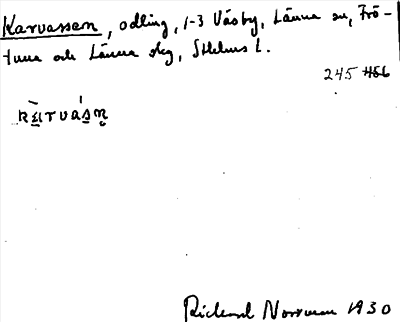 Karvassen, odling, 1-3 Väsby, Länna sn, Frö-
tuna och Länna skg, Sthlms l.
245 456
kàrvásn
Rickard Norrman 1930